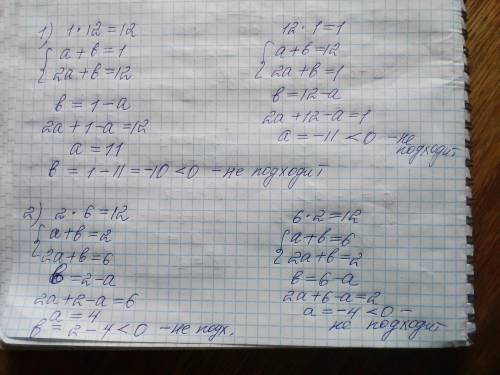 1) 1·12=12
a+b=1
2a+b=12
b=1-a
2a+1-a=12
a=11
b=1-11=-10<0 -не подходит
12·1=1
a+b=12
2a+b=1
b=12-a
2a+12-a=1
a=-11<0 -не
подходит
2) 2·6=12
a+b=2
2a+b=6
b=2-a
2a+2-a=6
a=4
b=2-4<0 -не подх.
6·2=12
a+b=6
2a+b=2
b=6-a
2a+6-a=2
a=-4<0 -
не подходит